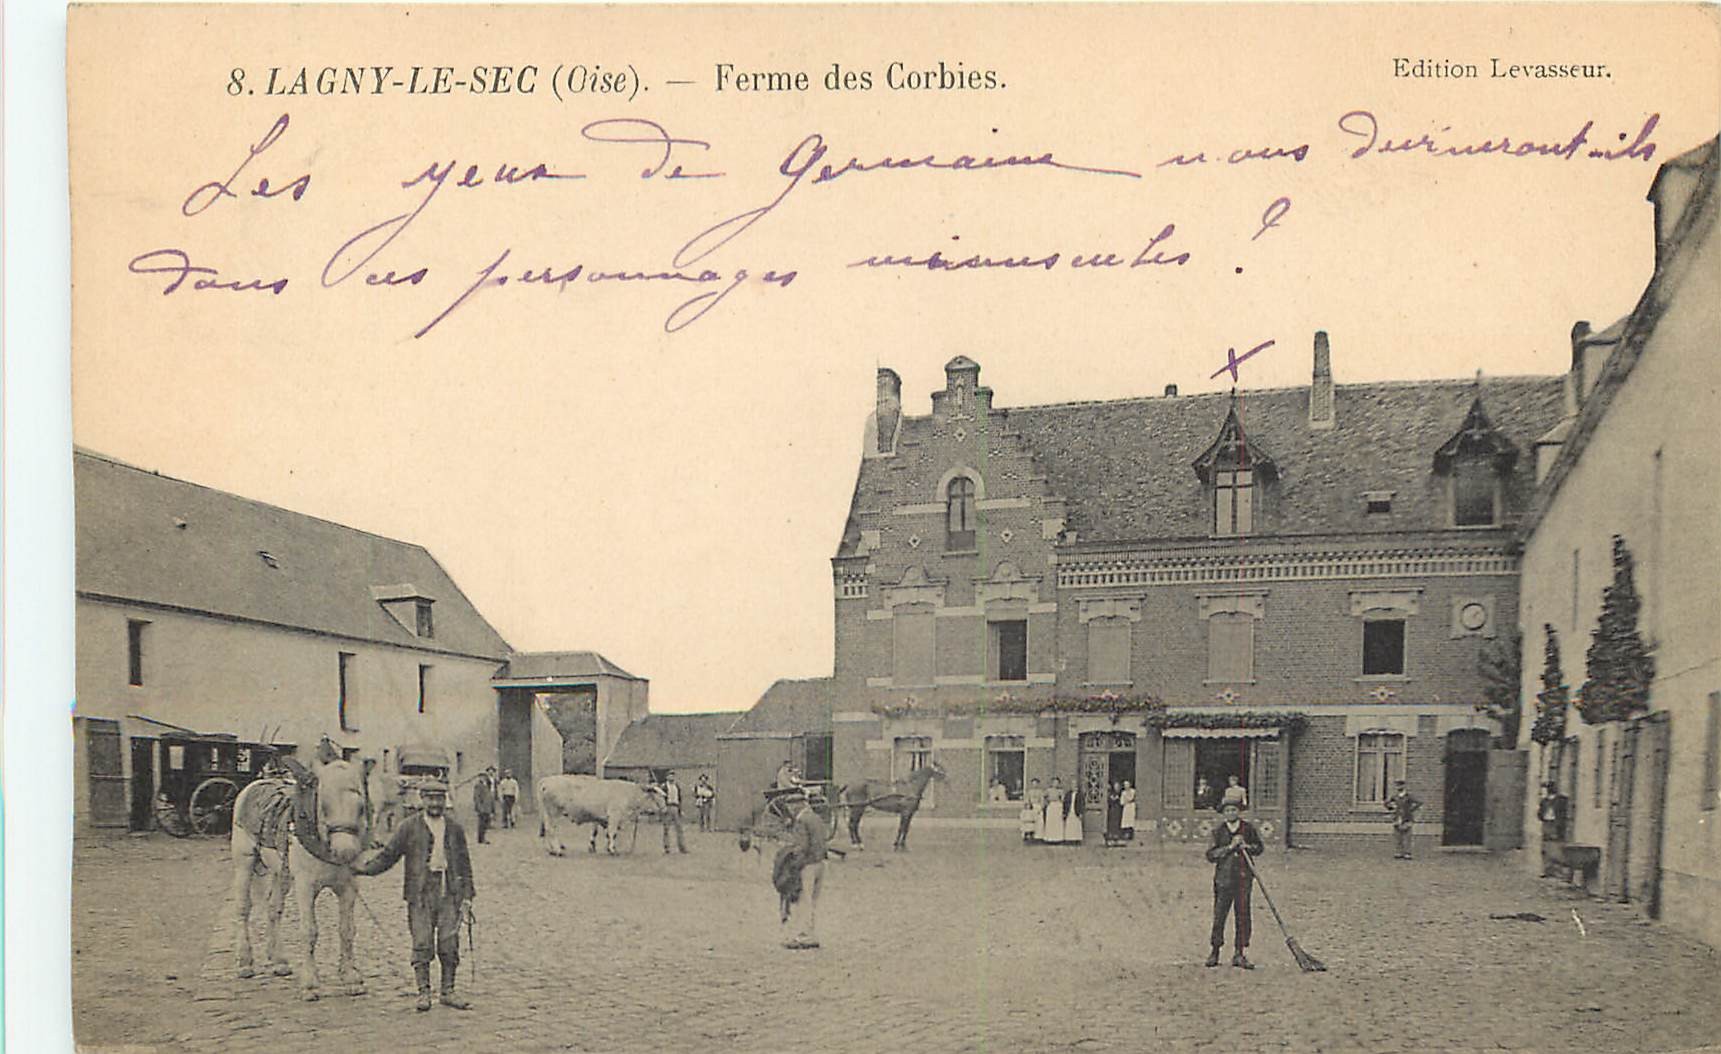 8. LAGNY-LE-SEC (Oise). — Ferme des Corbies.
Edition Levasseur.
Les yeux de Germaine nous devineront-ils
dans ces personnages minuscules ?